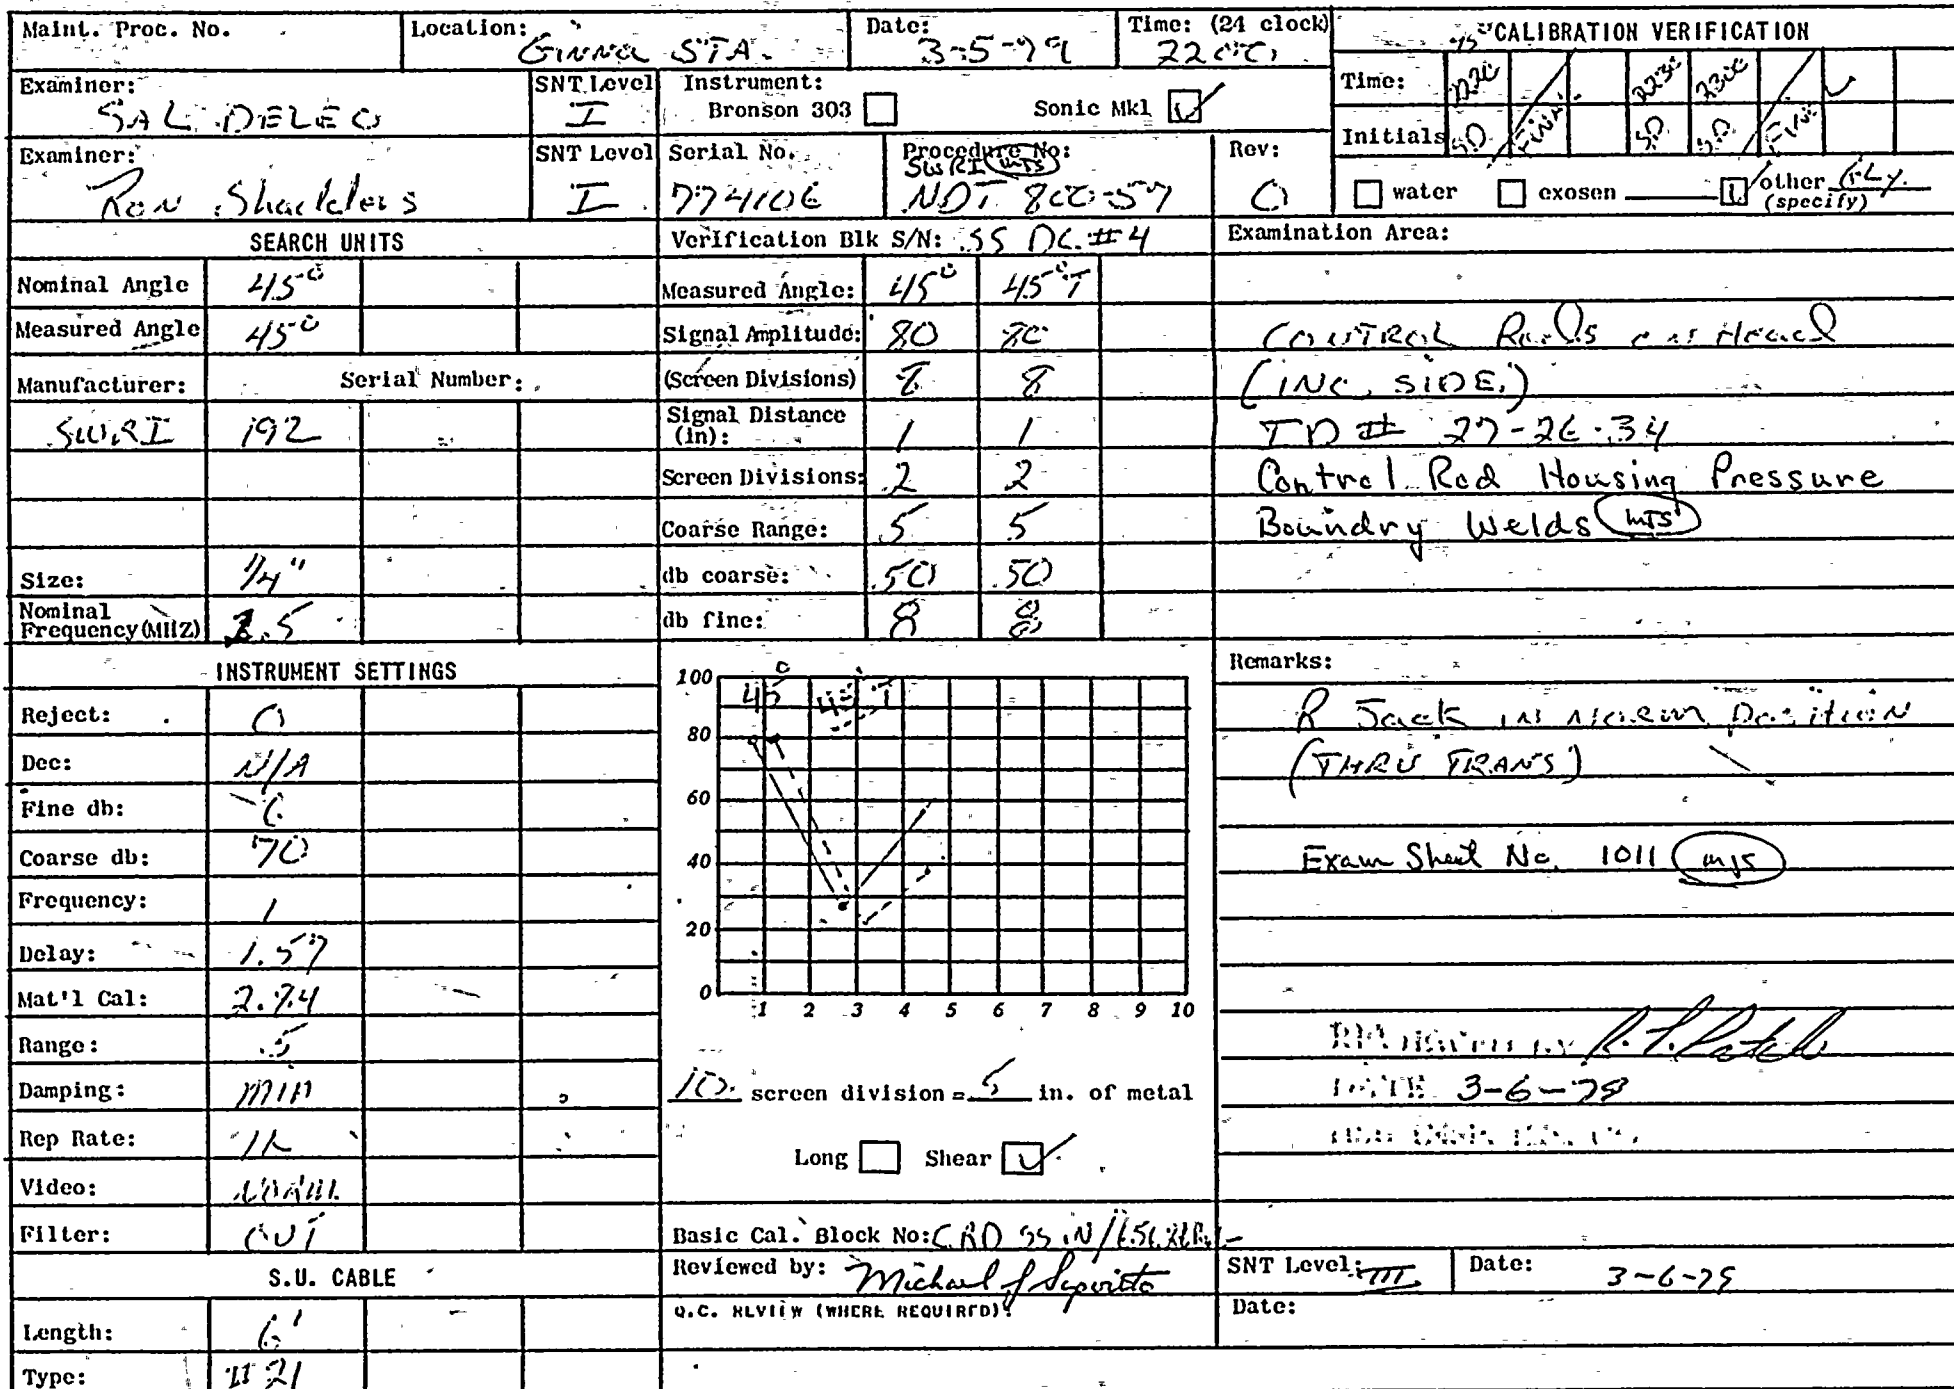 Maint. Proc. No.
Location: Ginna STA.
Date: 3-5-79
Time: (24 clock) 2200
CALIBRATION VERIFICATION
Time: 2220 2230 2300
Initials SD FINAL S.D. S.D. FINAL
water exosen other GLY. (specify)
Examiner: SAL DELEO
SNT Level I
Instrument: Bronson 303 Sonic Mkl
Examiner: Ron Shadders
SNT Level I
Serial No. 774106
Procedure No: SWRI mTS NDT 800-57
Rev: 0
SEARCH UNITS
Nominal Angle 45°
Measured Angle 45°
Manufacturer: Serial Number:
SWRI 192
Size: 1/4"
Nominal Frequency(MHZ) 2.5
Verification Blk S/N: SS DC. #4
Measured Angle: 45° 45°T
Signal Amplitude: 80 80
(Screen Divisions) 8 8
Signal Distance (in): 1 1
Screen Divisions: 2 2
Coarse Range: .5 .5
db coarse: 50 50
db fine: 8 8
Examination Area:
CONTROL Rods on Head
(INC. SIDE.)
ID # 27-26-34
Control Rod Housing Pressure
Boundry Welds mTS
INSTRUMENT SETTINGS
Reject: 0
Dec: N/A
Fine db:
Coarse db: 70
Frequency: 1
Delay: 1.57
Mat'l Cal: 2.74
Range: .5
Damping: MIN
Rep Rate: 1K
Video: NORM.
Filter: OUT
S.U. CABLE
Length: 6'
Type: # 21
100
80
60
40
20
0
1 2 3 4 5 6 7 8 9 10
45° 45° T
10 screen division = 5 in. of metal
Long Shear
Basic Cal. Block No: CRD SS IN/
Reviewed by: Michael J Saporito
SNT Level: III
Date: 3-6-79
Q.C. REVIEW (WHERE REQUIRED):
Date:
Remarks:
R Jack in norm Position
(THRU TRANS)
Exam Sheet No. 1011 mJS
DATE 3-6-79